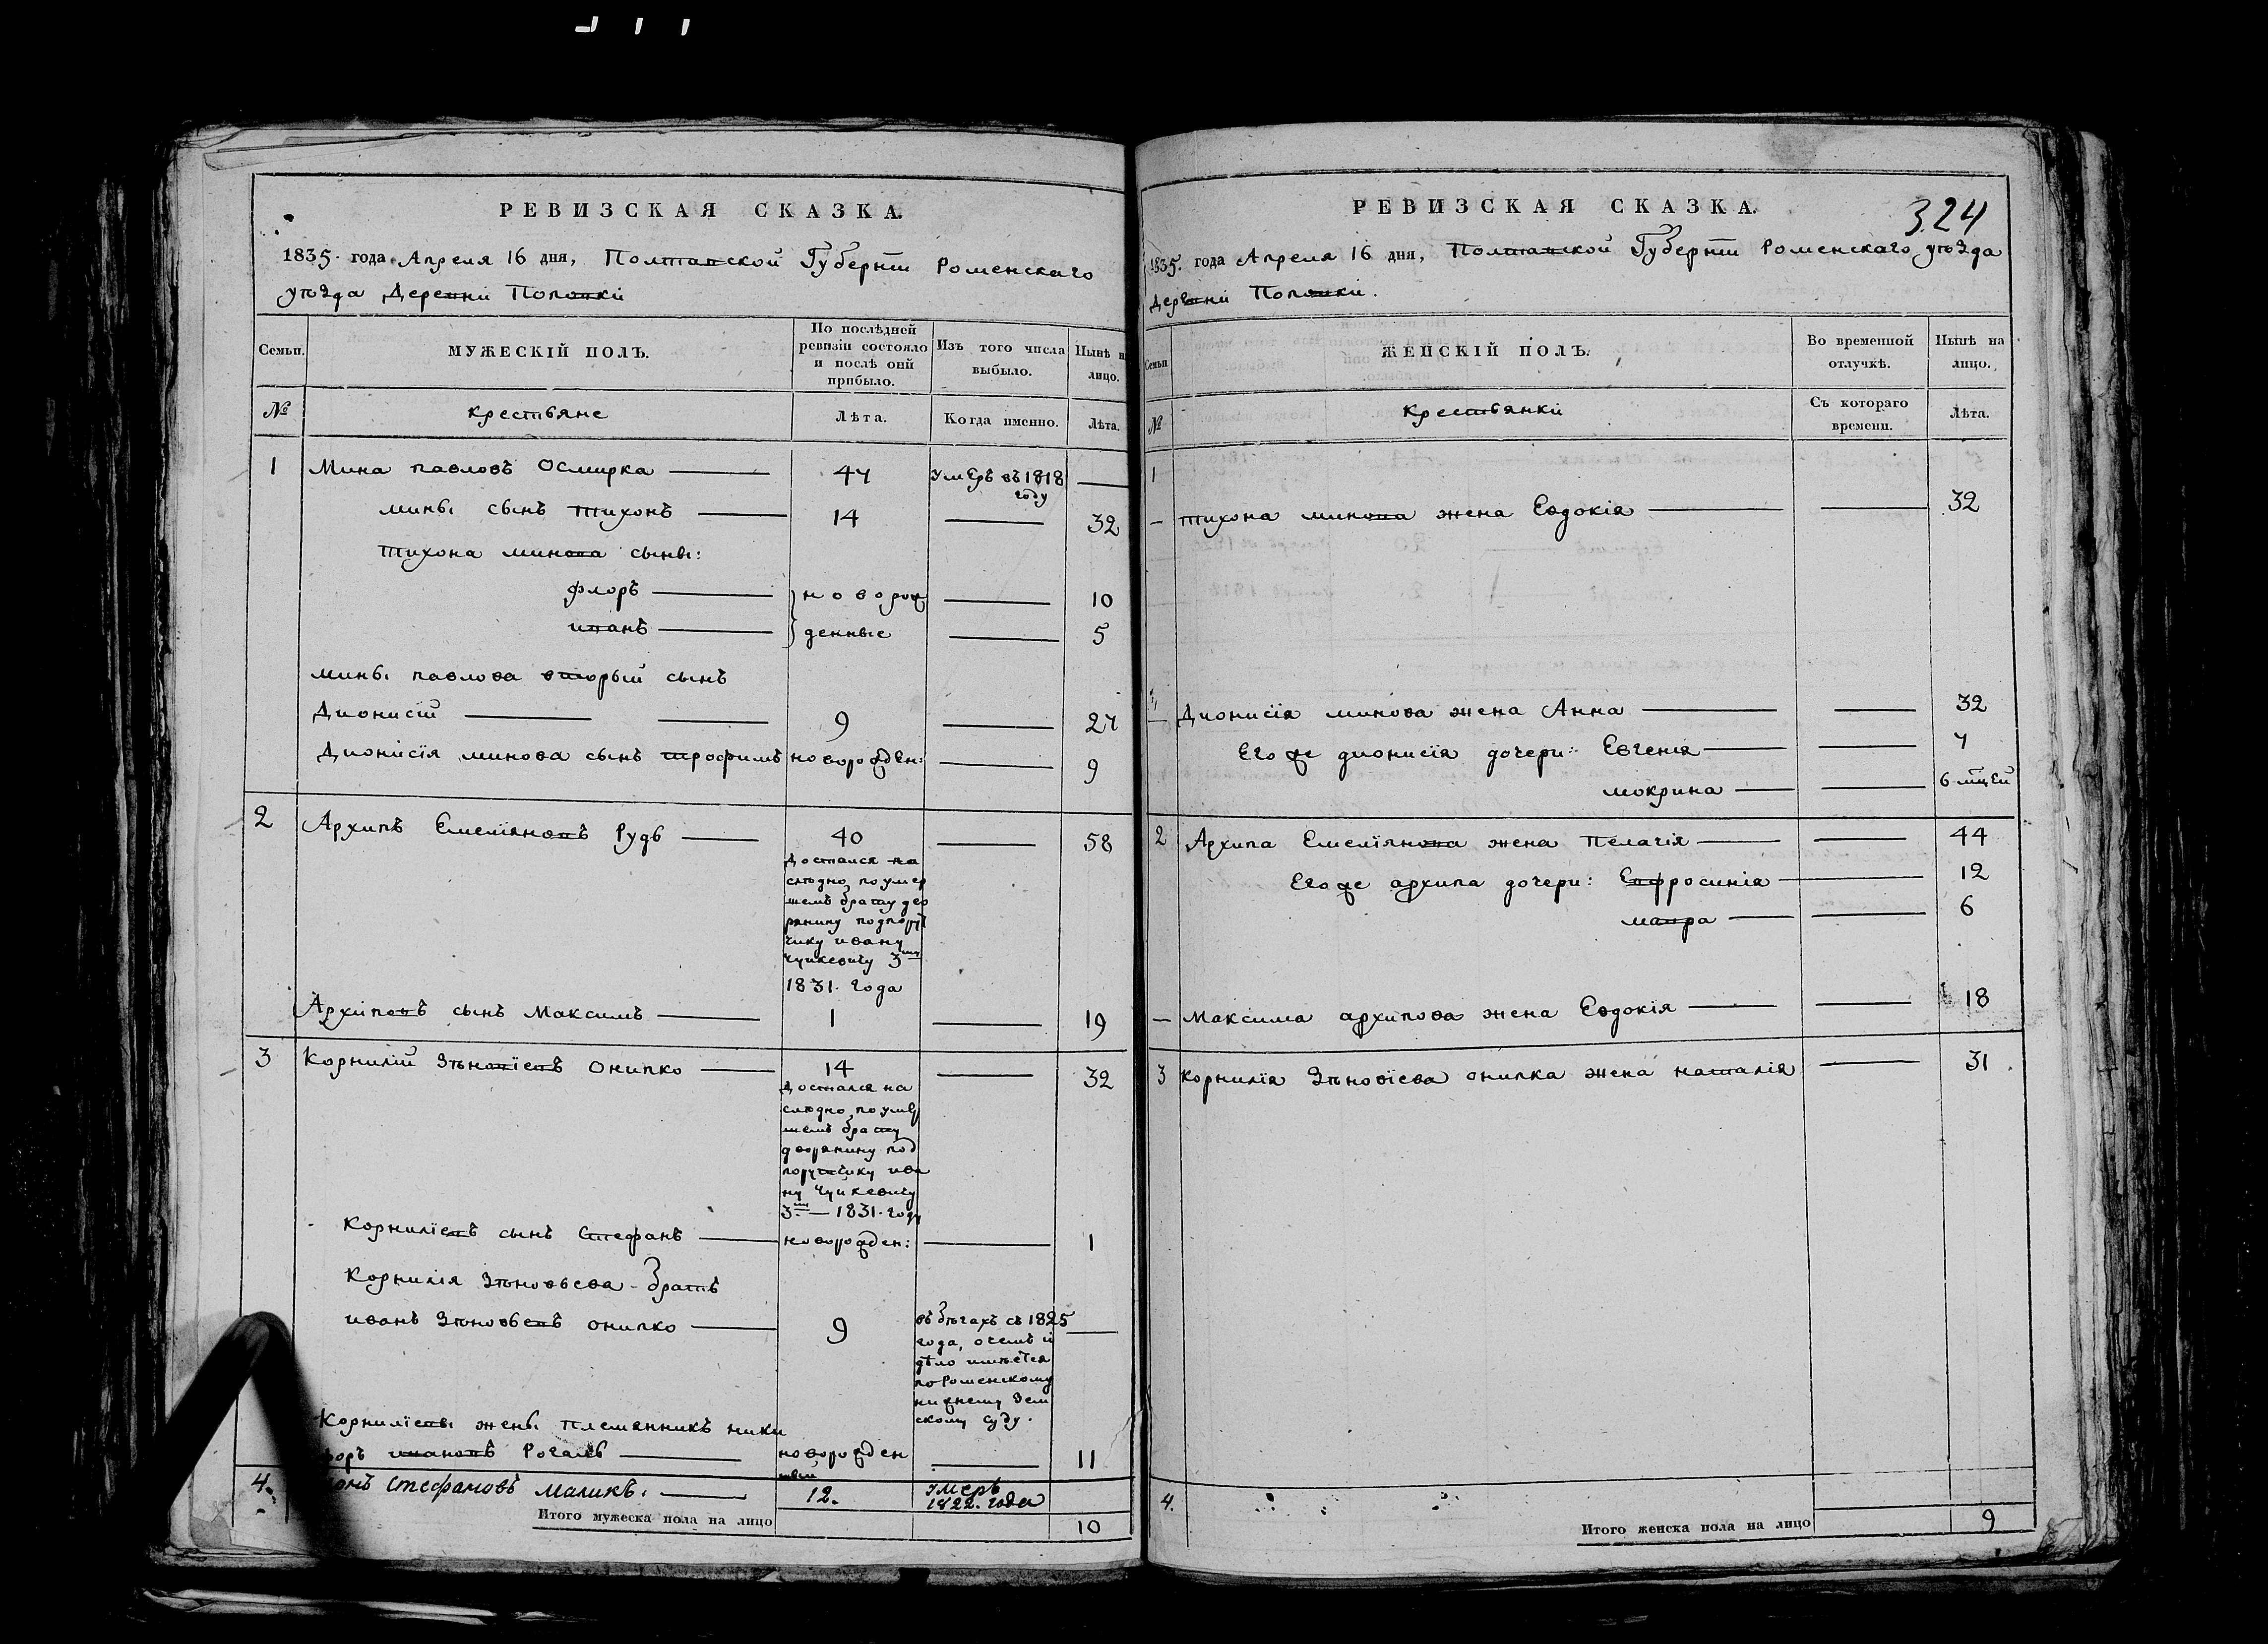 РЕВИЗСКАЯ СКАЗКА.
1835. года Апреля 16 дня, Полтавской Губернїи Роменскаго
уѣзда Деревни Поповки
Семьи.
МУЖЕСКІЙ ПОЛЪ.
По послѣдней ревизіи состояло и послѣ оній прибыло.
Изъ того числа выбыло.
Нынѣ на лицо.
№
крестьяне
Лѣта.
Когда именно.
Лѣта.
1 Мина павловъ Осмирка 44 умеръ въ 1818 году
мины сынъ тихонъ 14 32
тихона минова сыны:
флоръ новорож 10
иванъ денные 5
мины павлова вторый сынъ
Дионисій 9 27
Дионисія минова сынъ трофимъ новорожден: 9
2 Архипъ Емелїяновъ Рудь 40 58
достался на
слѣдно, по умер
шемъ брату дво
рянину подпору
чику ивану
чуйкевичу
1831. года
Архиповъ сынъ Максимъ 1 19
3 Корнилій Зѣновїевъ Онипко 14 32
Достался на
слѣдно, по умер
шемъ брату
дворянину под
поручику ива
ну Чуйкевичу
1831. году
Корнилїевъ сынъ Стефанъ новорожден: 1
Корнилія Зѣновьева братъ
иванъ Зѣновьевъ онипко 9
въ бѣгахъ съ 1825
года, о чемъ и
дѣло имѣется
по Роменскому
нижнему Зем
скому суду.
Корнилїевы жены племянникъ ники
форъ ивановъ Рогаль новорожден ный 11
4. Стефановъ Маликъ. 12. умеръ 1822. года
Итого мужеска пола на лицо 10
РЕВИЗСКАЯ СКАЗКА.
324
1835. года Апреля 16 дня, Полтавской Губернїи Роменскаго уѣзда
деревни Поповки.
Семьи
ЖЕНСКІЙ ПОЛЪ.
Во временной отлучкѣ.
Нынѣ на лицо.
№
крестьянки
Съ котораго времени.
Лѣта.
1
тихона минова жена Евдокія 32
Дионисїя минова жена Анна 32
Его же дионисїя дочери: Евгенія 7
мокрина 6 мцей
2 Архипа Емелїянова жена Пелагія 44
Его же архипа дочери: Евфросинія 12
мавра 6
Максима архипова жена Евдокія 18
3 Корнилїя Зѣновїева онипка жена наталія 31
4.
Итого женска пола на лицо 9